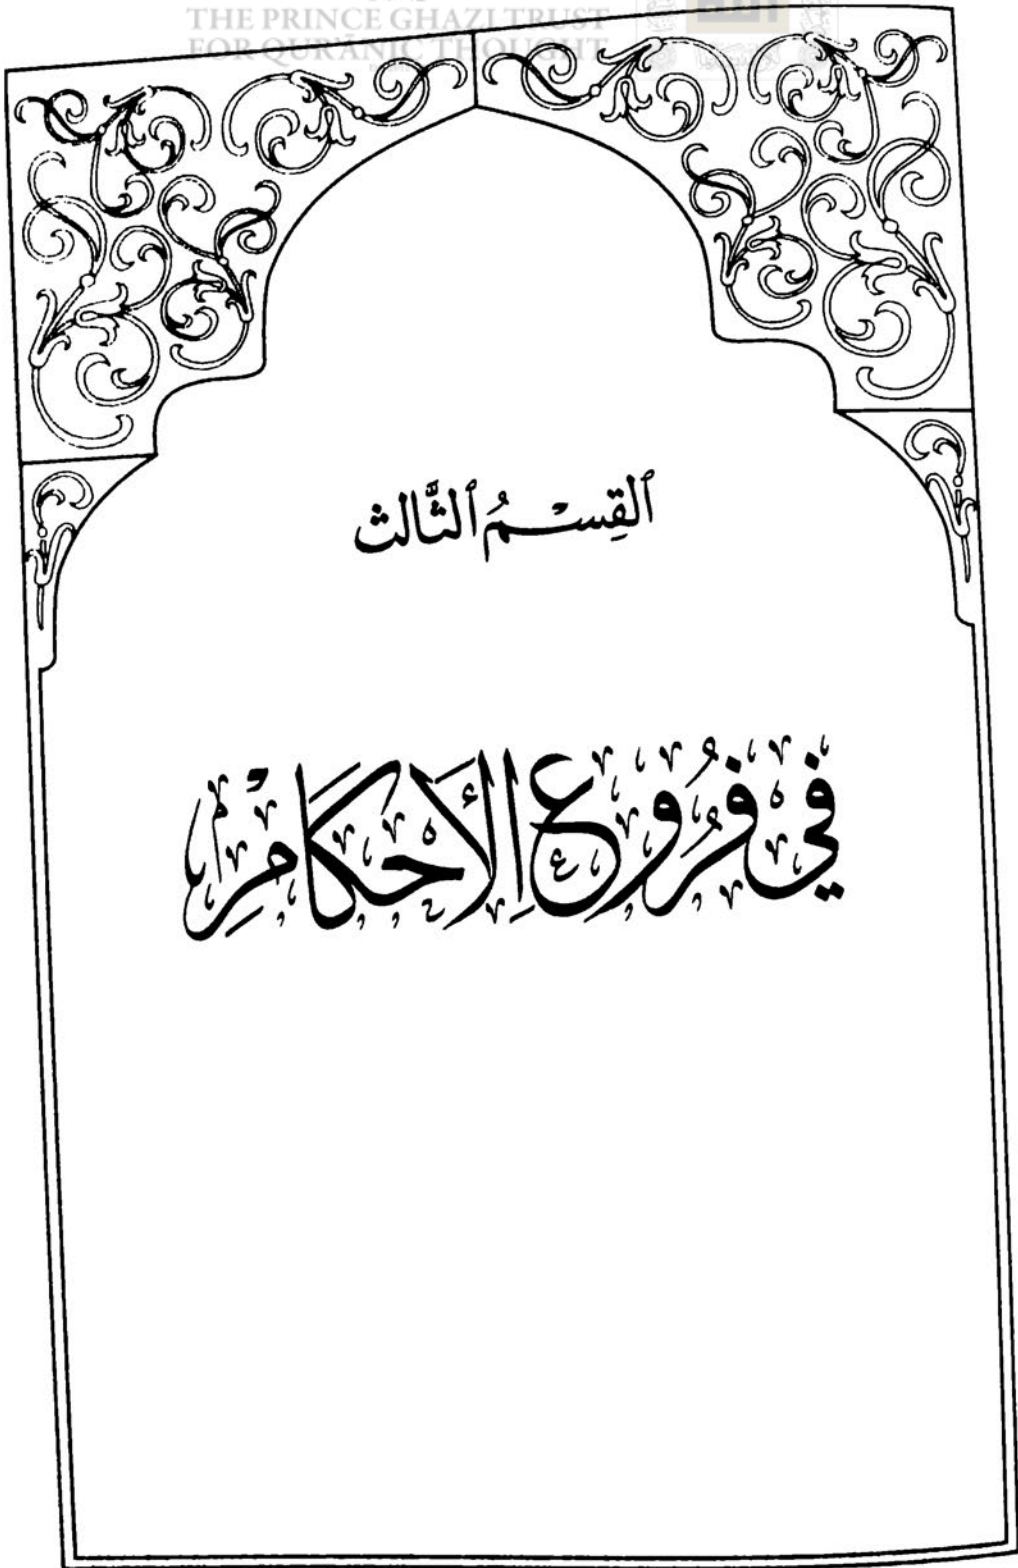 THE PRINCE GHAZI TRUST
FOR QUR'ĀNIC THOUGHT
ٱلقِسْمُ ٱلثَّالث
في فُرُوعِ الأَحكَامِ